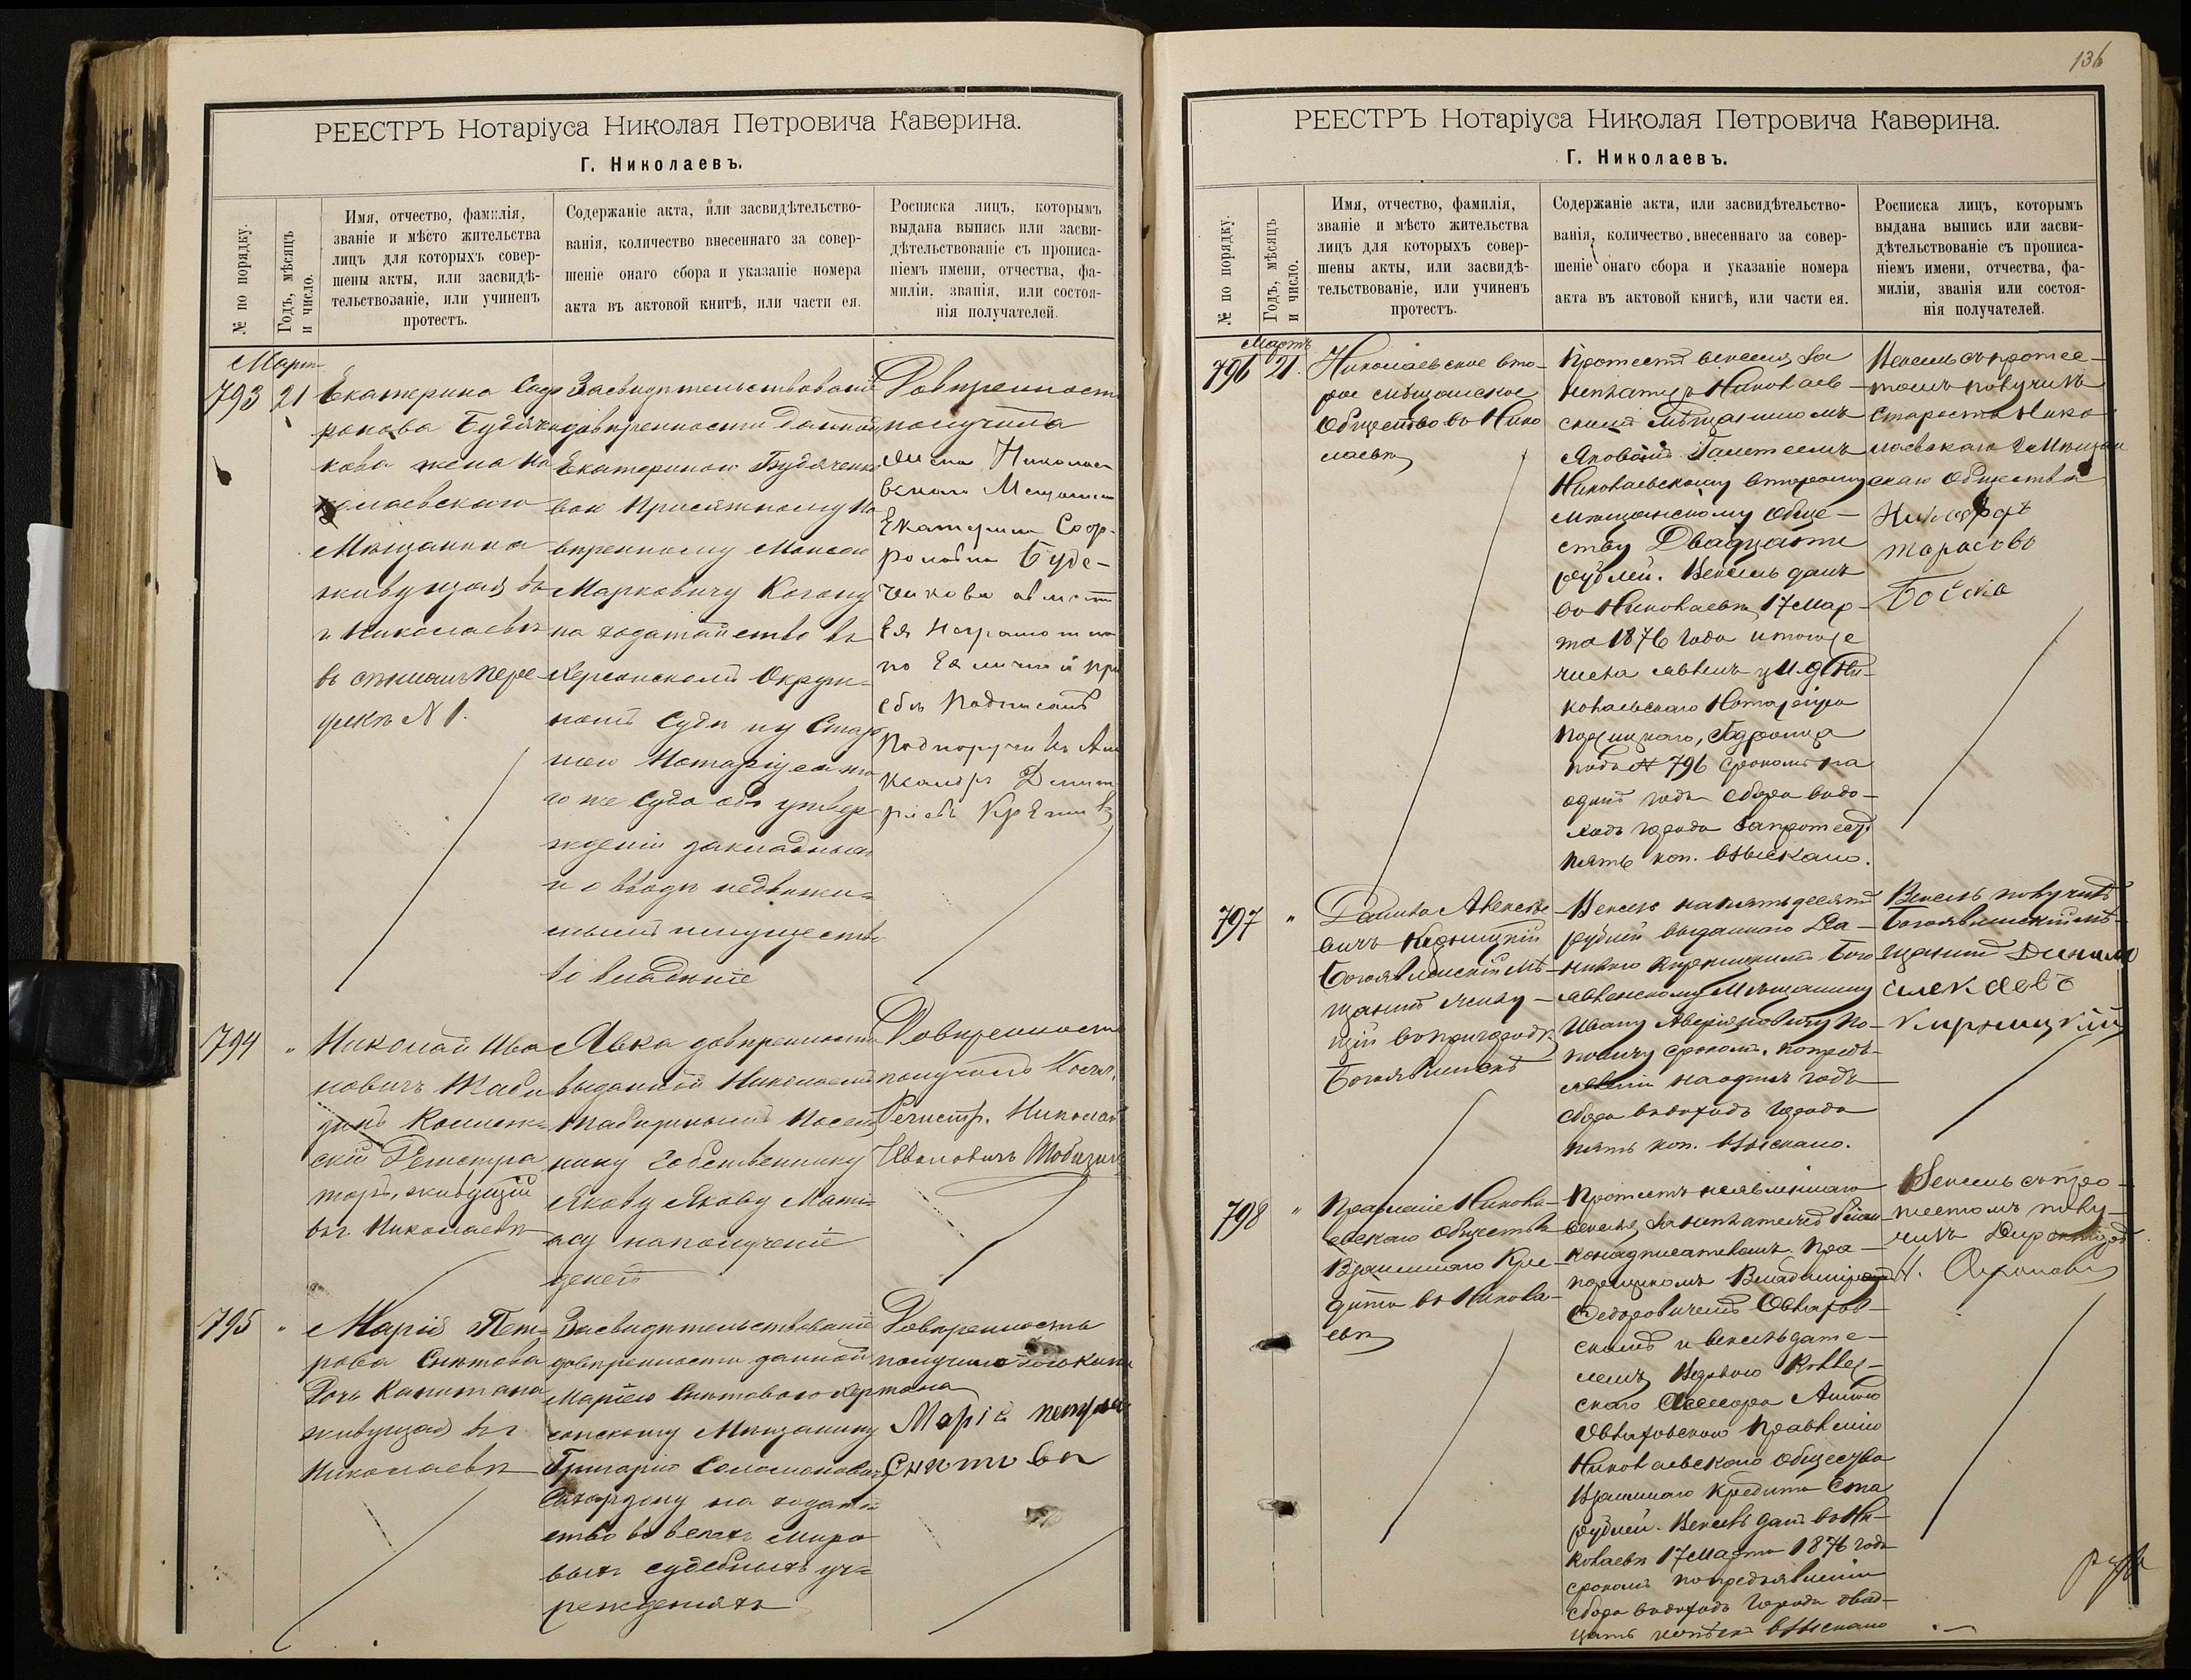 РЕЕСТРЪ Нотаріуса Николая Петровича Каверина.
Г. Николаевъ.
№ по порядку.
Годъ, мѣсяцъ
и число.
Имя, отчество, фамилія,
званіе и мѣсто жительства
лицъ для которыхъ совер-
шены акты, или засвидѣ-
тельствованіе, или учиненъ
протестъ.
Содержаніе акта, или засвидѣтельство-
ванія, количество внесеннаго за совер-
шеніе онаго сбора и указаніе номера
акта въ актовой книгѣ, или части ея.
Росписка лицъ, которымъ
выдана выпись или засви-
дѣтельствованіе съ прописа-
ніемъ имени, отчества, фа-
миліи, званія, или состоя-
нія получателей.
Март
793
21
Екатерина Соф
ронова Будячен
кова жена Ни
колаевскаго
Мѣщанина
живущая въ
г. Николаевѣ
въ спускъ пере
улкѣ № 1.
Засвидѣтельствованіе
довѣренности данной
Екатериною Будяченко
вою Присяжному По
вѣренному
Марковичу Когону
на ходатайство въ
Херсонскомъ Окруж-
номъ Судѣ и у Стар
шаго Нотаріуса то
го же Суда объ утвер
жденіи закладныхъ
и о вводѣ недвижи-
мымъ имуществ
во владѣніе
Довѣренность
получила
жена Николаев
скаго Мещанина
Екатерина Соф-
ронова Буде-
чинкова а вместо
Ея неграмотной
по Ея личной про
сбѣ Подписалъ
Подпоручикъ
794
"
Николай Ива
новичъ Жаби
Коллеж-
скій Регистра
торъ, живущій
въ г. Николаевѣ
Явка довѣренности
выданной Николаемъ
Поселя
нину Собственнику
Якову Якову Мати-
асу на полученіе
денегъ
Довѣренность
получилъ Коллеж.
Регистр. Николай
Ивановичъ
795
"
Марія Пет-
рова Снѣтова
Дочь Капитана
живущая въ г.
Николаевѣ
Засвидѣтельствованіе
довѣренности данной
Маріею Снѣтовою Хер
сонскому Мѣщанину
Григорію Соломоновичу
на ходатай
ство во всѣхъ миро
выхъ судебныхъ уч-
режденіяхъ
Довѣренность
получила дочь Капи
тана
Марія Петрова
Снѣтова
136
РЕЕСТРЪ Нотаріуса Николая Петровича Каверина.
Г. Николаевъ.
№ по порядку.
Годъ, мѣсяцъ
и число.
Имя, отчество, фамилія,
званіе и мѣсто жительства
лицъ для которыхъ совер-
шены акты, или засвидѣ-
тельствованіе, или учиненъ
протестъ.
Содержаніе акта, или засвидѣтельство-
ванія, количество внесеннаго за совер-
шеніе онаго сбора и указаніе номера
акта въ актовой книгѣ, или части ея.
Росписка лицъ, которымъ
выдана выпись или засви-
дѣтельствованіе съ прописа-
ніемъ имени, отчества, фа-
миліи, званія или состоя-
нія получателей.
Мартъ
796
21.
Николаевское вто-
рое мѣщанское
Общество въ Нико
лаевѣ
Протестъ векселя, за
неплатежъ Николаев-
скимъ мѣщаниномъ
Николаевскому второму
мѣщанскому Обще-
ству Двадцати
рублей. Вексель данъ
въ Николаевѣ, 17 Мар-
та 1876 года и того же
числа явленъ у И. д. Ни-
колаевскаго Нотаріуса
подъ № 796 срокомъ на
одинъ годъ сбора въ до-
ходъ города за протестъ
пять коп. взыскано.
Вексель съ протес-
томъ получилъ
Староста Нико
лаевскаго 2 Мѣщан
скаго Общества
797
"
Данило Алексѣе
вичъ Кирницкій
Богоявленскій мѣ-
щанинъ живу-
щій въ пригородѣ
Богоявленскѣ
Вексель на пятьдесятъ
рублей выданнаго Да-
нилою Кирницкимъ Бого
явленскому Мѣщанину
Ивану Аверіяновичу По-
повичу срокомъ, по предъ-
явленіи на одинъ годъ
сбора въ доходъ города
пять коп. взыскано.
Вексель получилъ
Богоявленскій мѣ-
щанинъ Данило
Алексѣевъ
Кирницкій
798
"
Правленіе Никола-
евскаго Общества
Взаимнаго Кре-
дита въ Никола-
евѣ
Протестъ неявленнаго
векселя, за неплатежъ бланк-
онадписателемъ Пра-
порщикомъ Владиміромъ
Федоровичемъ
скимъ и векселедате-
лемъ вдовою Коллеж-
скаго Ассесора
Правленію
Николаевскаго Общества
Взаимнаго Кредита Ста
рублей. Вексель данъ въ Ни-
колаевѣ 17 Марта 1876 года
срокомъ по предъявленіи
сбора въ доходъ города двад-
цать копѣекъ взыскано
Вексель съ про-
тестомъ полу-
чилъ Директоръ